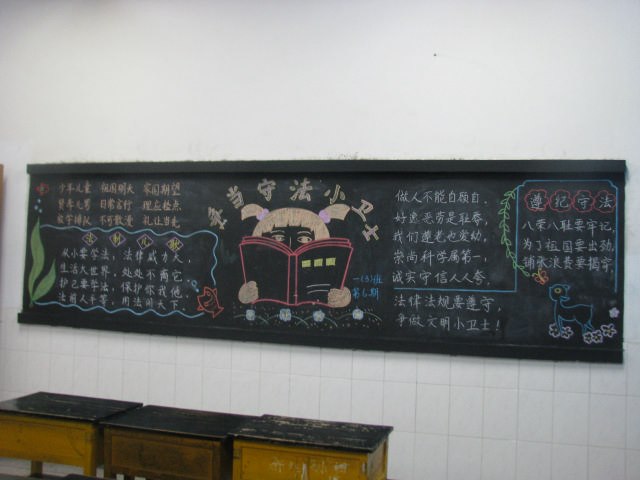 少年儿童 祖国明天 家国期望
贤年儿男 日常言行 理应检点
放学排队 不可散漫 礼让当先
法制儿歌
从小要学法，法律威力人，
生活大世界，处处不离它，
护己要学法，保护你我他，
法前人平等，用法问天下
争当守法小卫士
一(3)班
第6期
做人不能自顾自，
好逸恶劳是耻辱，
我们尊老也爱幼，
崇尚科学属第一，
诚实守信人人夸，
法律法规要遵守，
争做文明小卫士！
遵纪守法
八荣八耻要牢记，
为了祖国要出劲，
铺张浪费要揭穿，